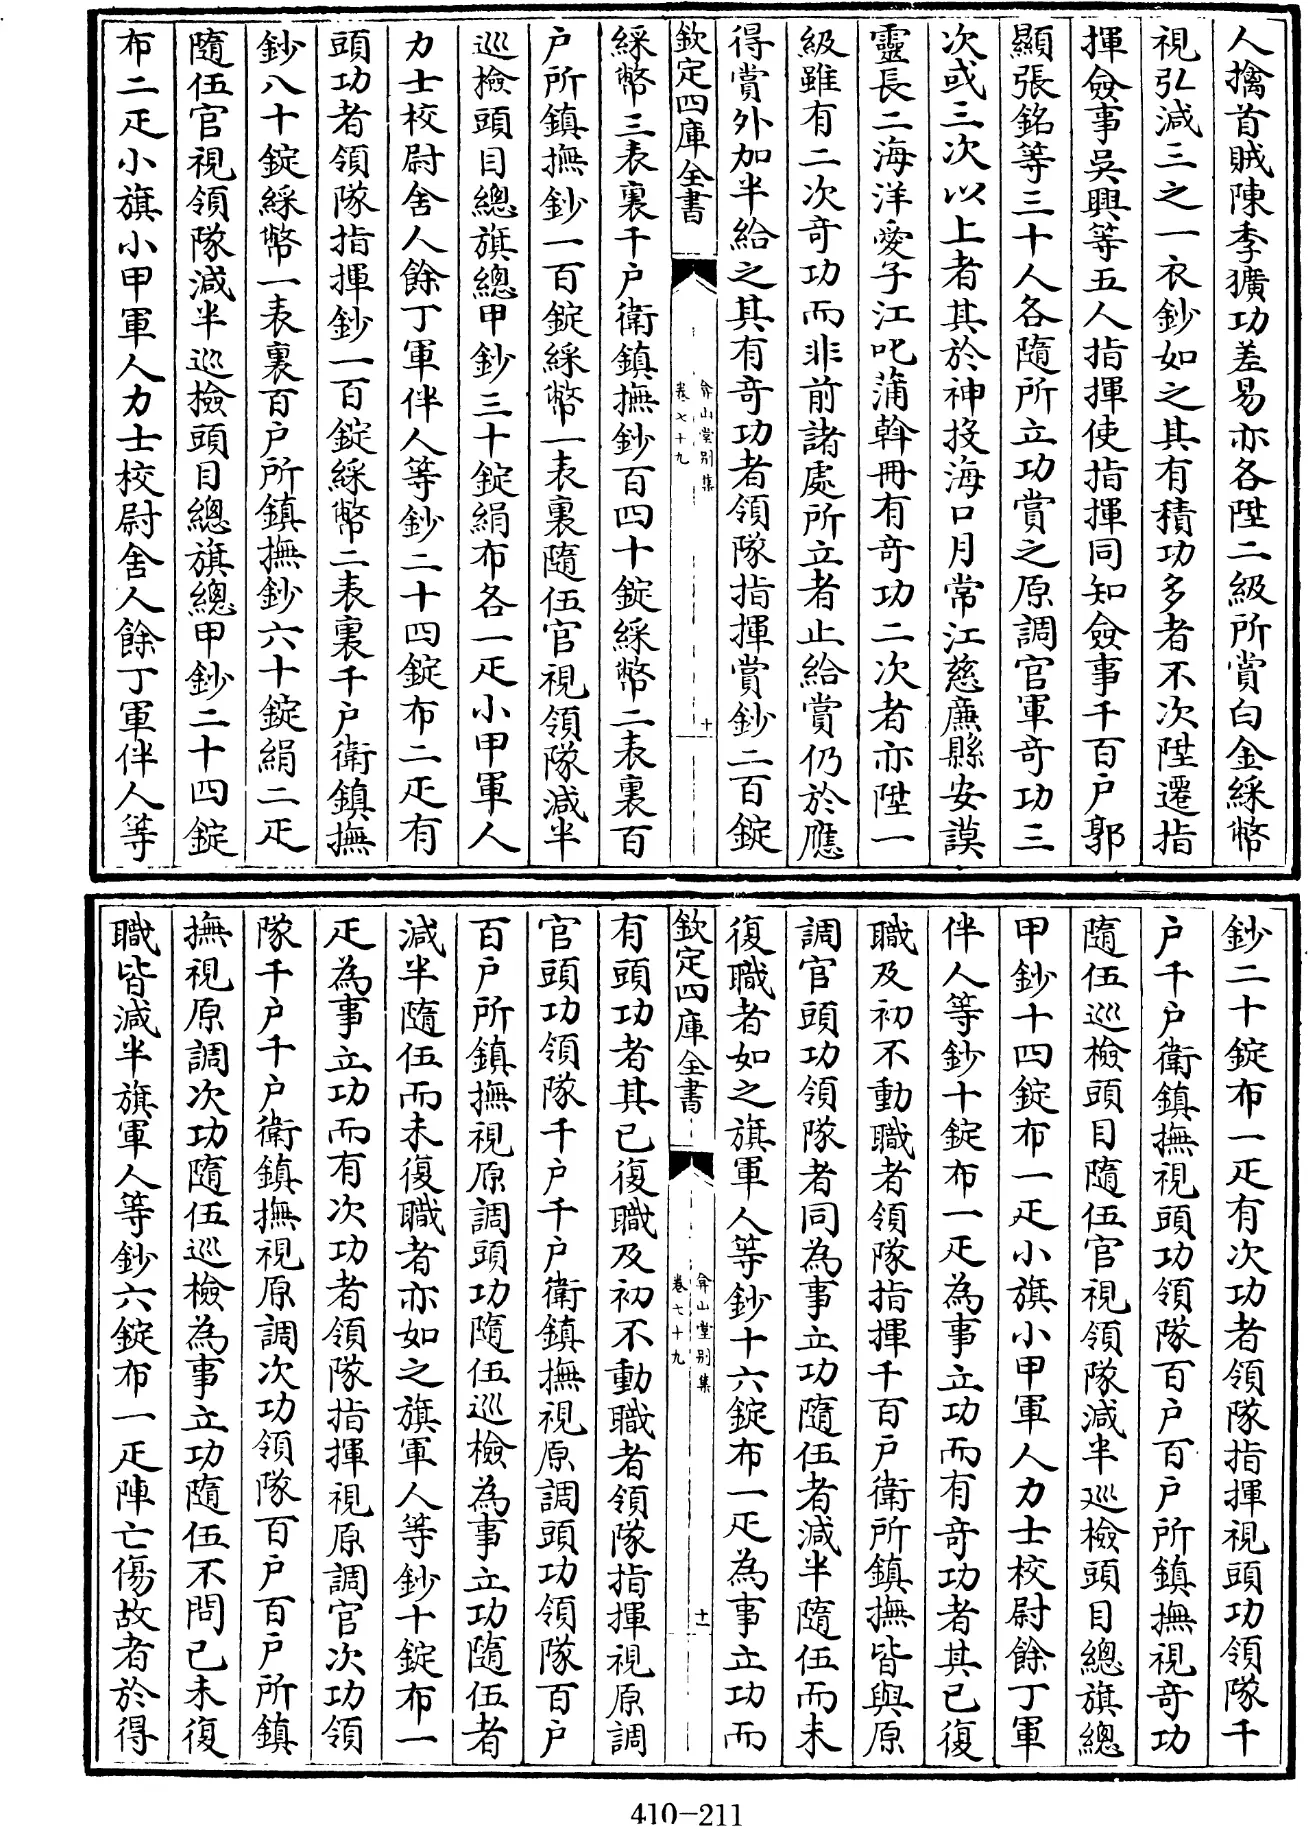 人擒首賊陳季擴功差易亦各陞二級所賞白金綵幣
視弘減三之一衣鈔如之其有積功多者不次陞遷指
揮僉事吳興等五人指揮使指揮同知僉事千百户郭
顯張銘等三十人各隨所立功賞之原調官軍竒功三
次或三次以上者其於神投海口月常江慈廉縣安謨
靈長二海洋愛子江叱蒲斡冊有竒功二次者亦陞一
級雖有二次竒功而非前諸處所立者止給賞仍於應
得賞外加半給之其有竒功者領隊指揮賞鈔二百錠
欽定四庫全書
弇山堂别集
卷七十九
十
綵幣三表裏千户衛鎮撫鈔百四十錠綵幣二表裏百
户所鎮撫鈔一百錠綵幣一表裏隨伍官視領隊減半
廵檢頭目總旗總甲鈔三十錠絹布各一疋小甲軍人
力士校尉舍人餘丁軍伴人等鈔二十四錠布二疋有
頭功者領隊指揮鈔一百錠綵幣二表裏千户衛鎮撫
鈔八十錠綵幣一表裏百户所鎮撫鈔六十錠絹二疋
隨伍官視領隊減半廵檢頭目總旗總甲鈔二十四錠
布二疋小旗小甲軍人力士校尉舍人餘丁軍伴人等
鈔二十錠布一疋有次功者領隊指揮視頭功領隊千
户千户衛鎮撫視頭功領隊百户百户所鎮撫視竒功
隨伍廵檢頭目隨伍官視領隊減半廵檢頭目總旗總
甲鈔十四錠布一疋小旗小甲軍人力士校尉餘丁軍
伴人等鈔十錠布一疋為事立功而有竒功者其已復
職及初不動職者領隊指揮千百户衛所鎮撫皆與原
調官頭功領隊者同為事立功隨伍者減半隨伍而未
復職者如之旗軍人等鈔十六錠布一疋為事立功而
欽定四庫全書
弇山堂别集
卷七十九
十一
有頭功者其已復職及初不動職者領隊指揮視原調
官頭功領隊千户千户衛鎮撫視原調頭功領隊百户
百户所鎮撫視原調頭功隨伍廵檢為事立功隨伍者
減半隨伍而未復職者亦如之旗軍人等鈔十錠布一
疋為事立功而有次功者領隊指揮視原調官次功領
隊千户千户衛鎮撫視原調次功領隊百户百户所鎮
撫視原調次功隨伍廵檢為事立功隨伍不問已未復
職皆減半旗軍人等鈔六錠布一疋陣亡傷故者於得
410-211